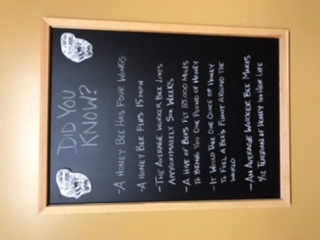 DID YOU
KNOW?
- A HONEY BEE HAS FOUR WINGS
- A HONEY BEE FLIES 15 MPH
- THE AVERAGE WORKER BEE LIVES
APPROXIMATELY SIX WEEKS
- A HIVE OF BEES FLY 55,000 MILES
TO BRING YOU ONE POUND OF HONEY
- IT WOULD TAKE ONE OUNCE OF HONEY
TO FUEL A BEES FLIGHT AROUND THE
WORLD
- AN AVERAGE WORKER BEE MAKES
1/12 TEASPOON OF HONEY IN HER LIFE